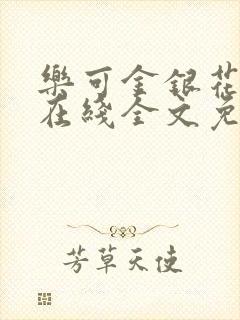 樂可金銀花
在綫全文免
芳草天使